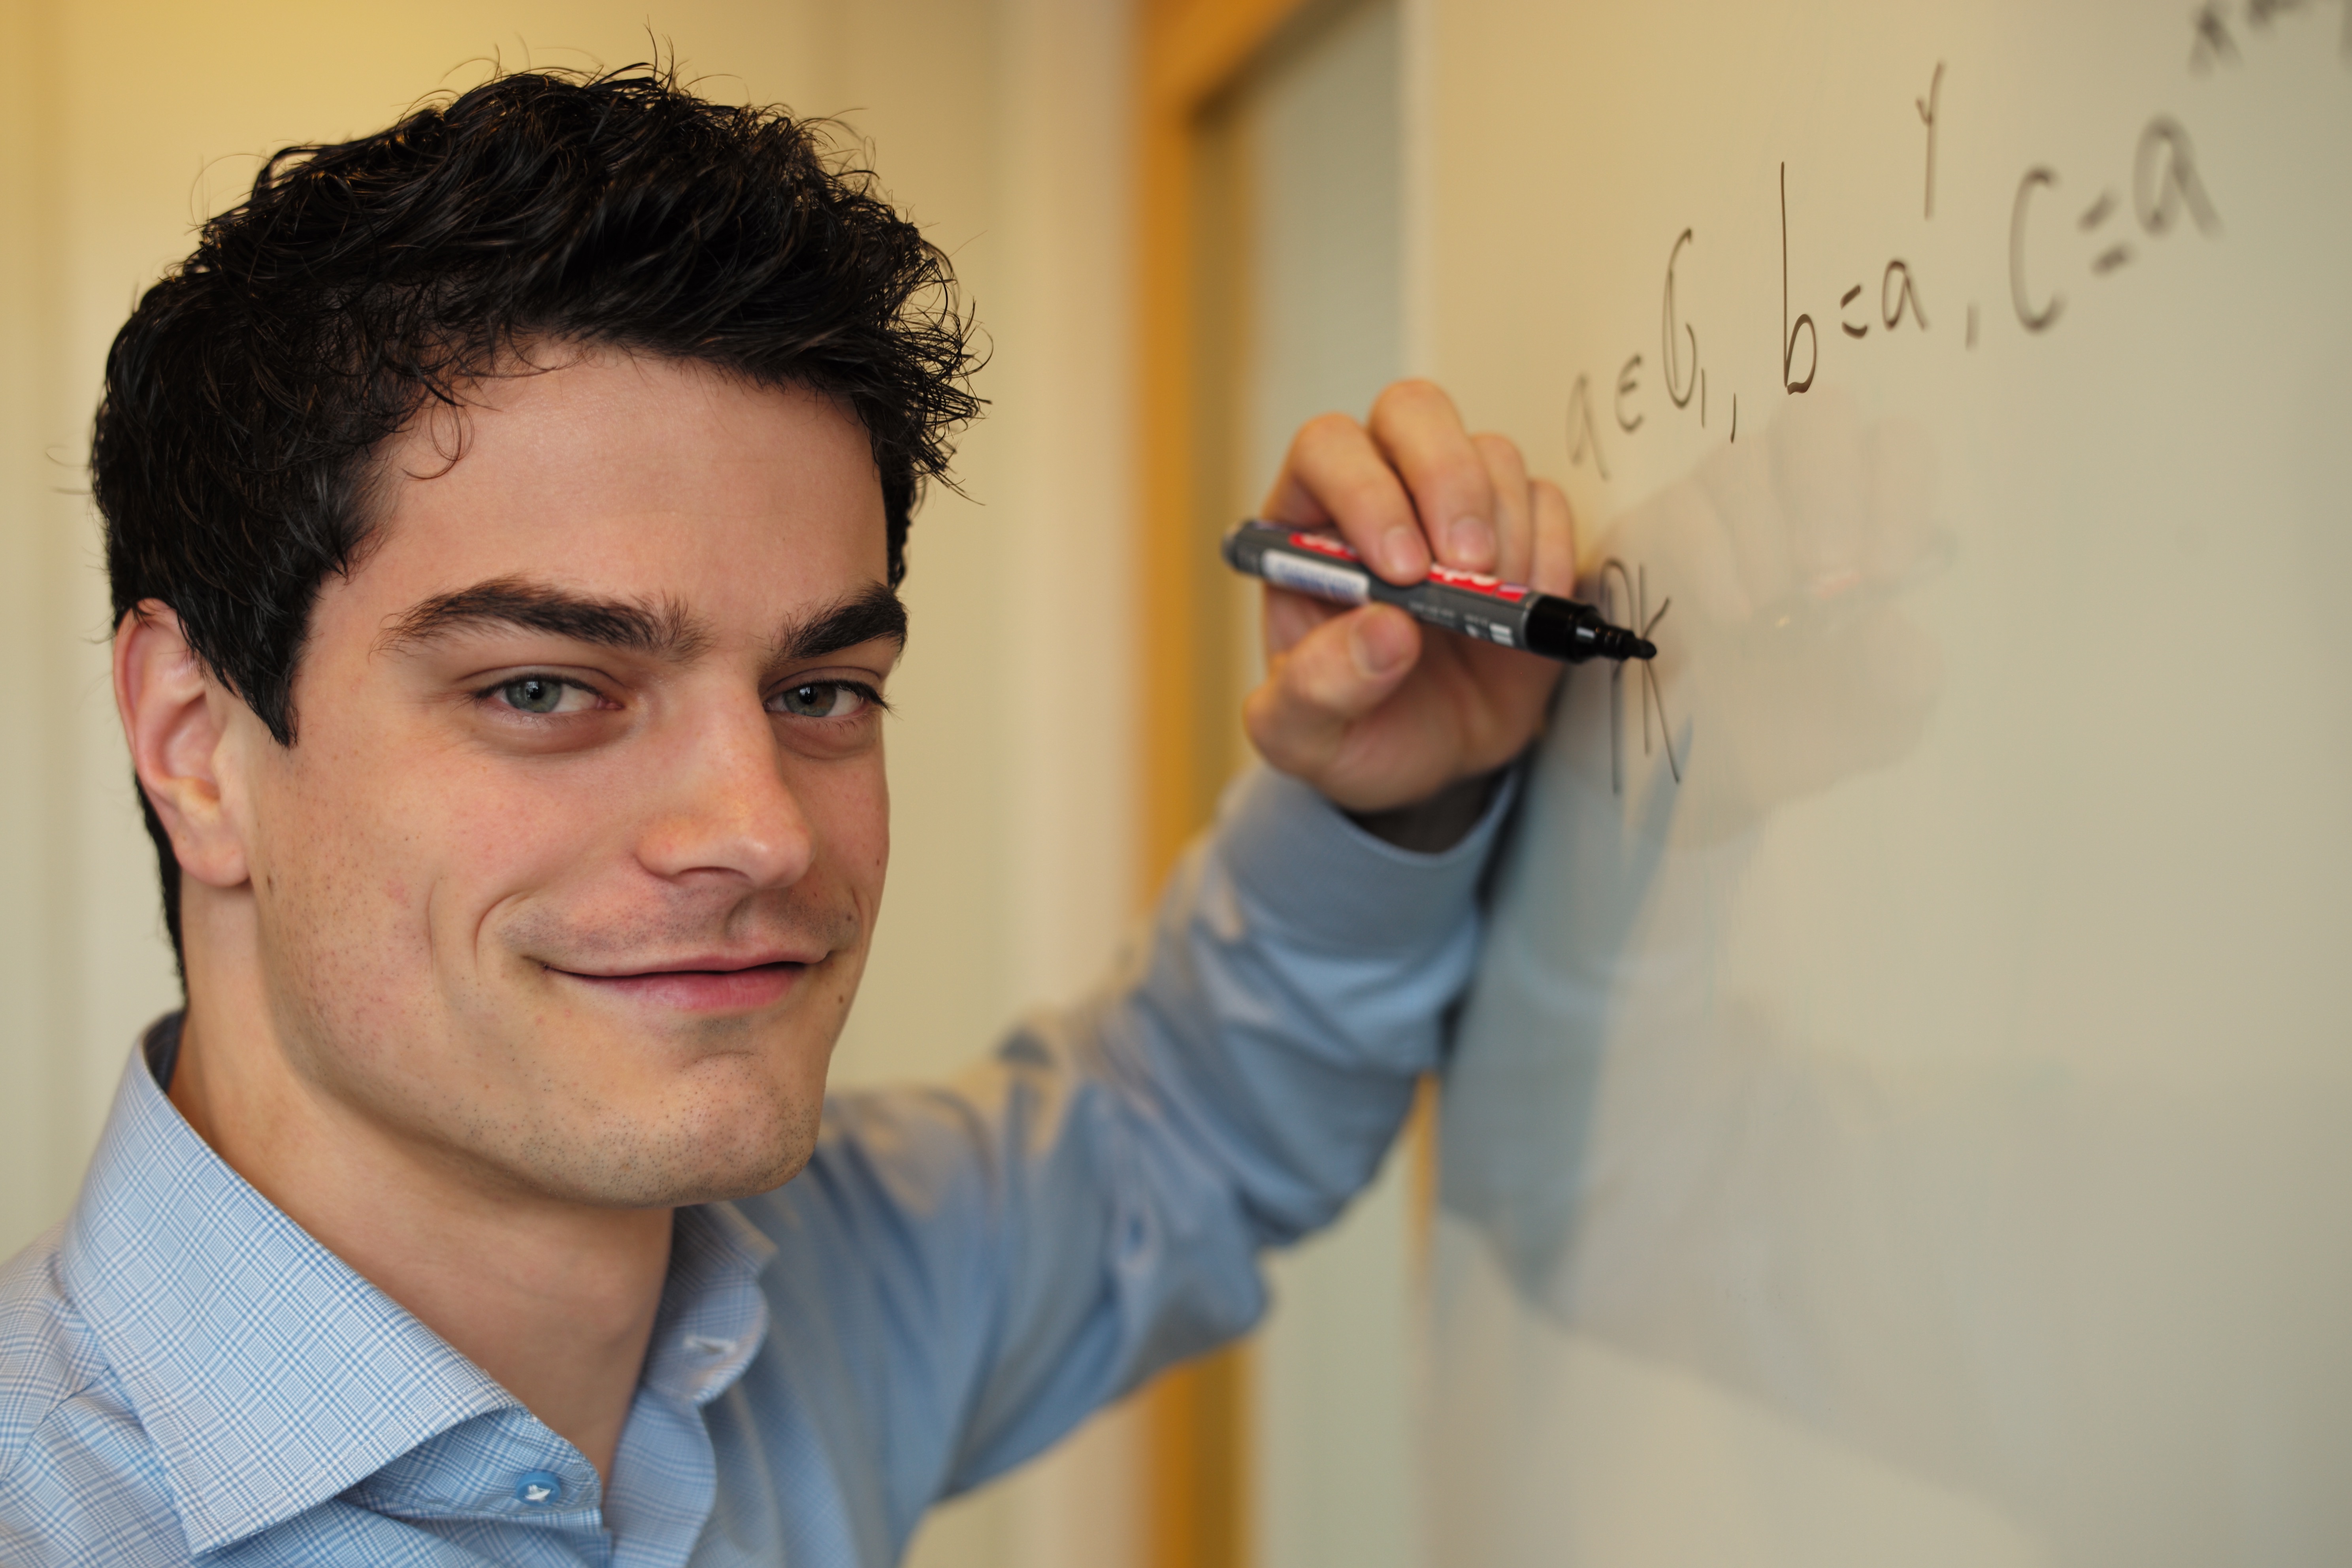 a ∈ G₁, b = a^y, c = a
pk